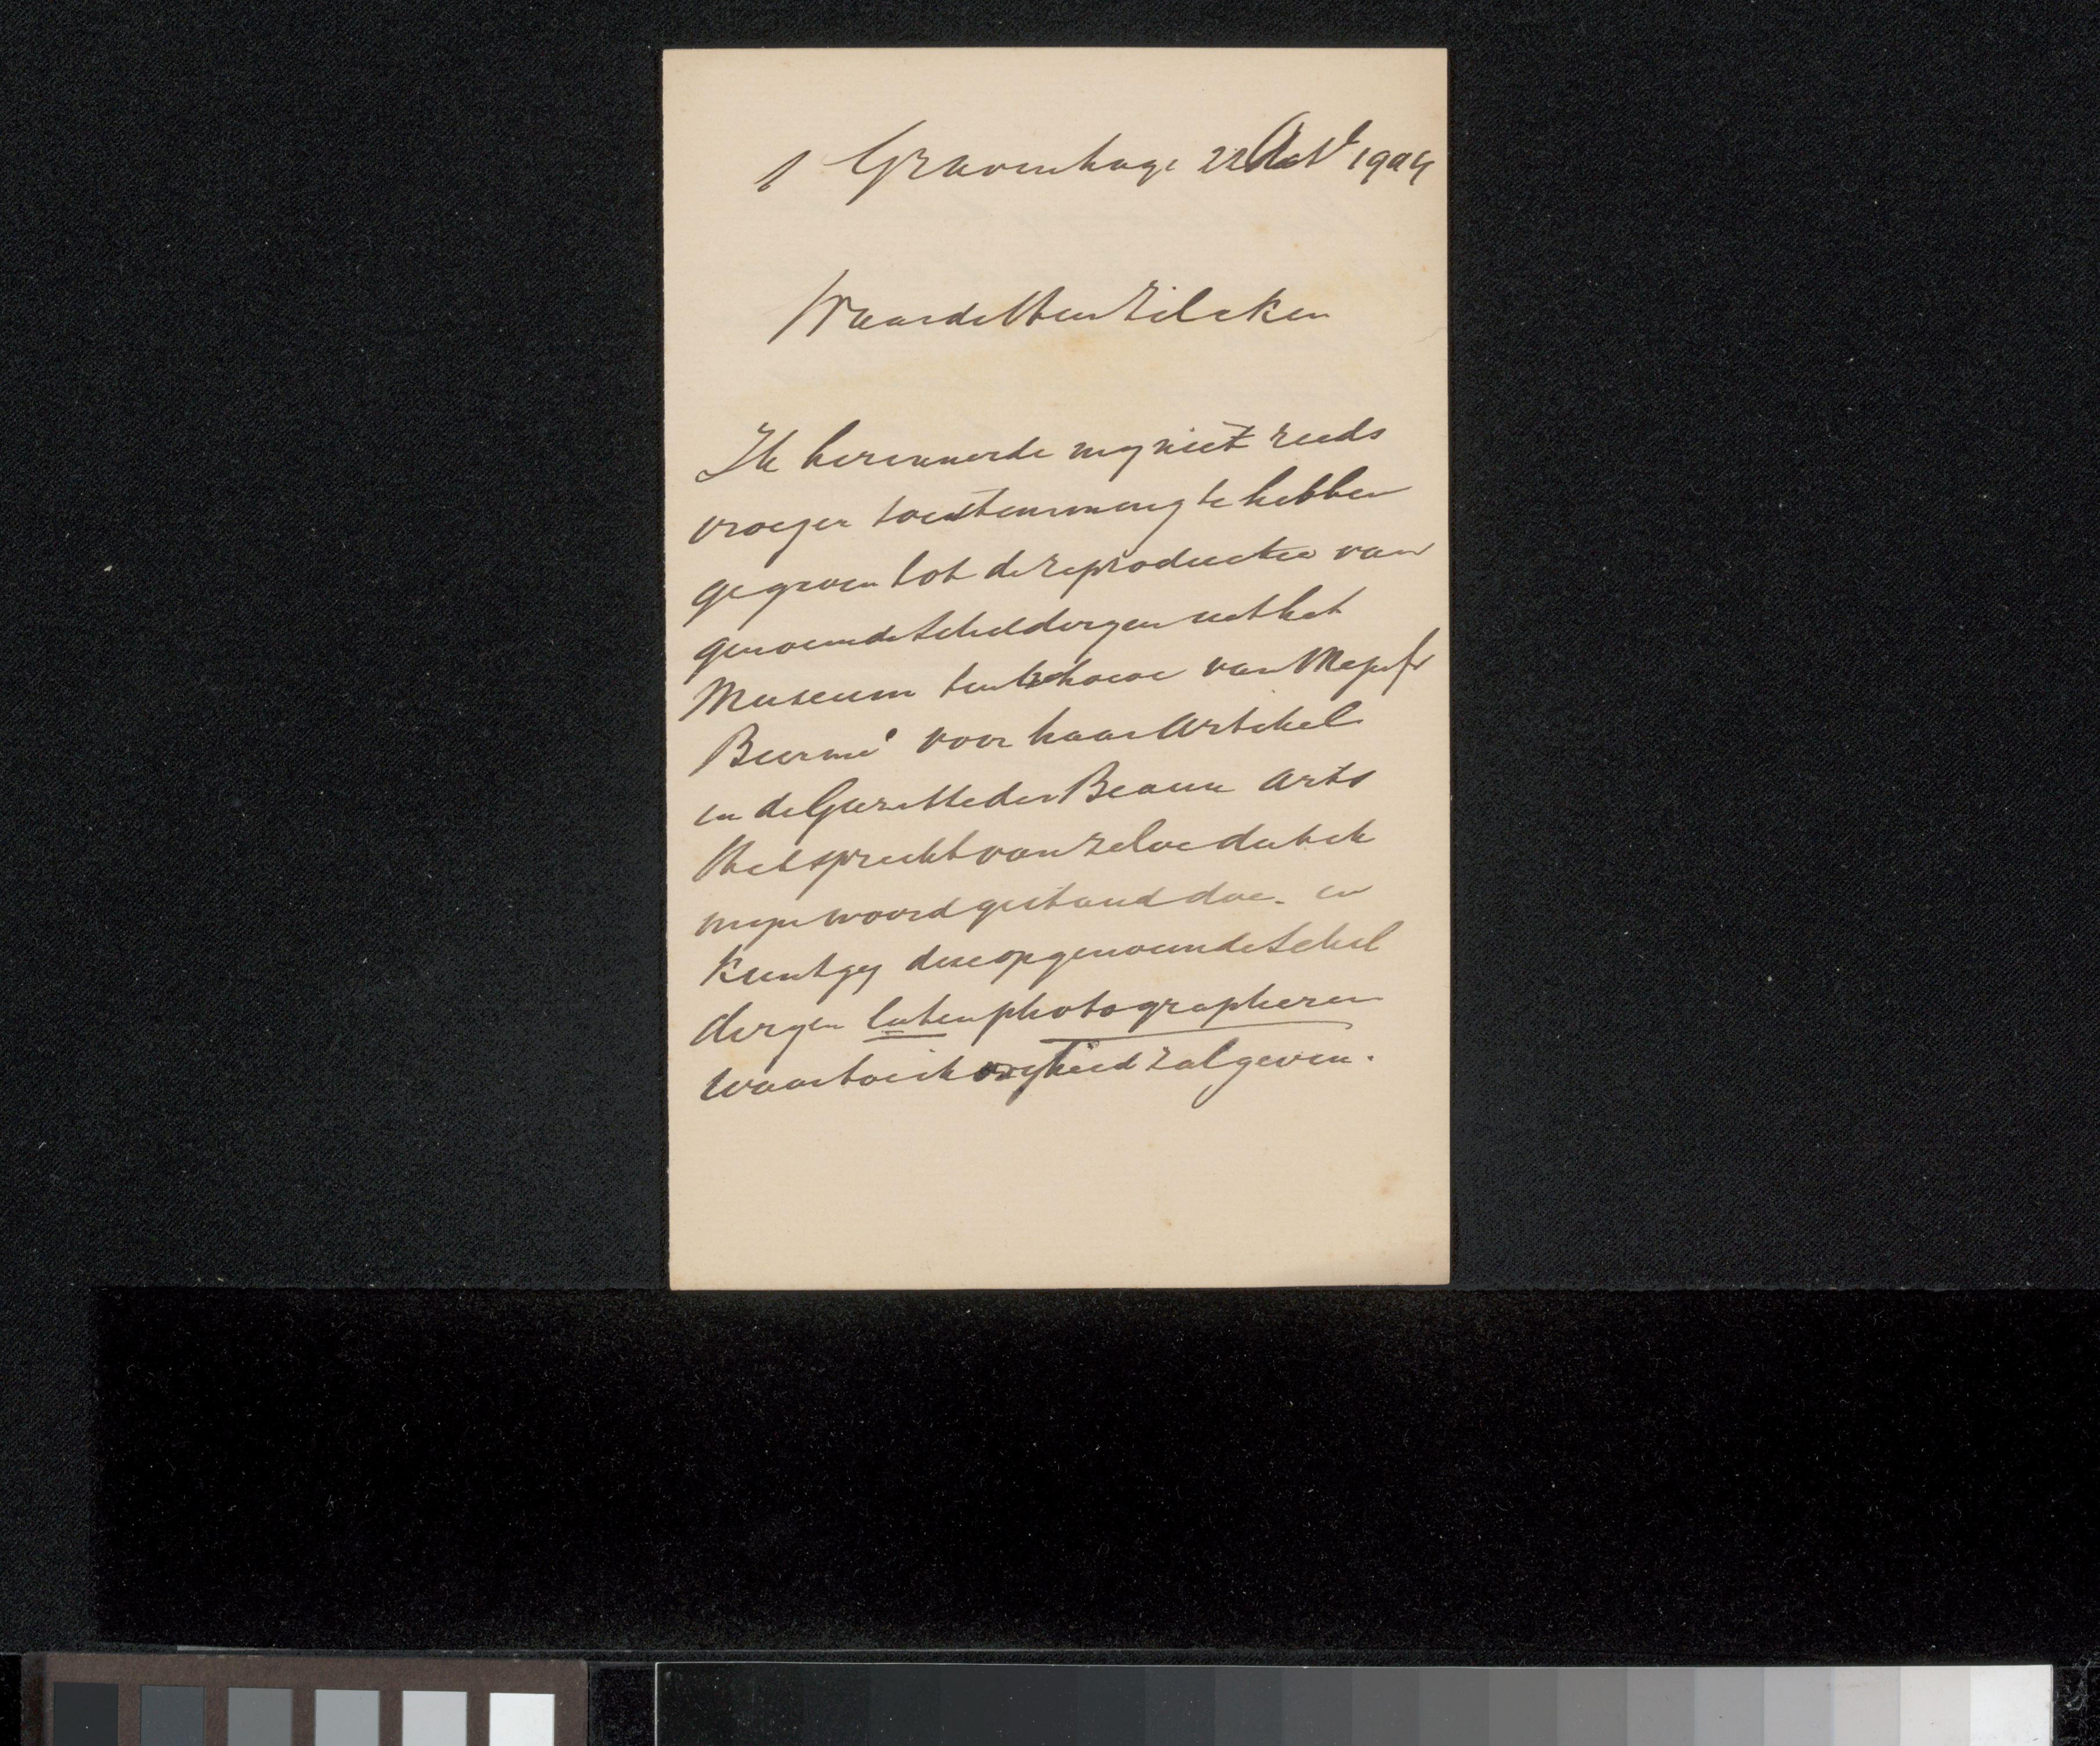 s Gravenhage 22 Oct 1904
Waarde Heer Zilcken
Ik herinnerde mij niet reeds
vroeger toestemming te hebben
gegeven tot de reproductie van
genoemde Schilderyen uit het
Museum ten behoeve van Mejufr
voor haar Artikel
in de Gazette des Beaux Arts
Het spreekt van zelve dat ik
mijn woord gestand doe. en
kunt gij deze opgenoemde Schil
deryen laten photographeren
waartoe ik vryheid zal geven.